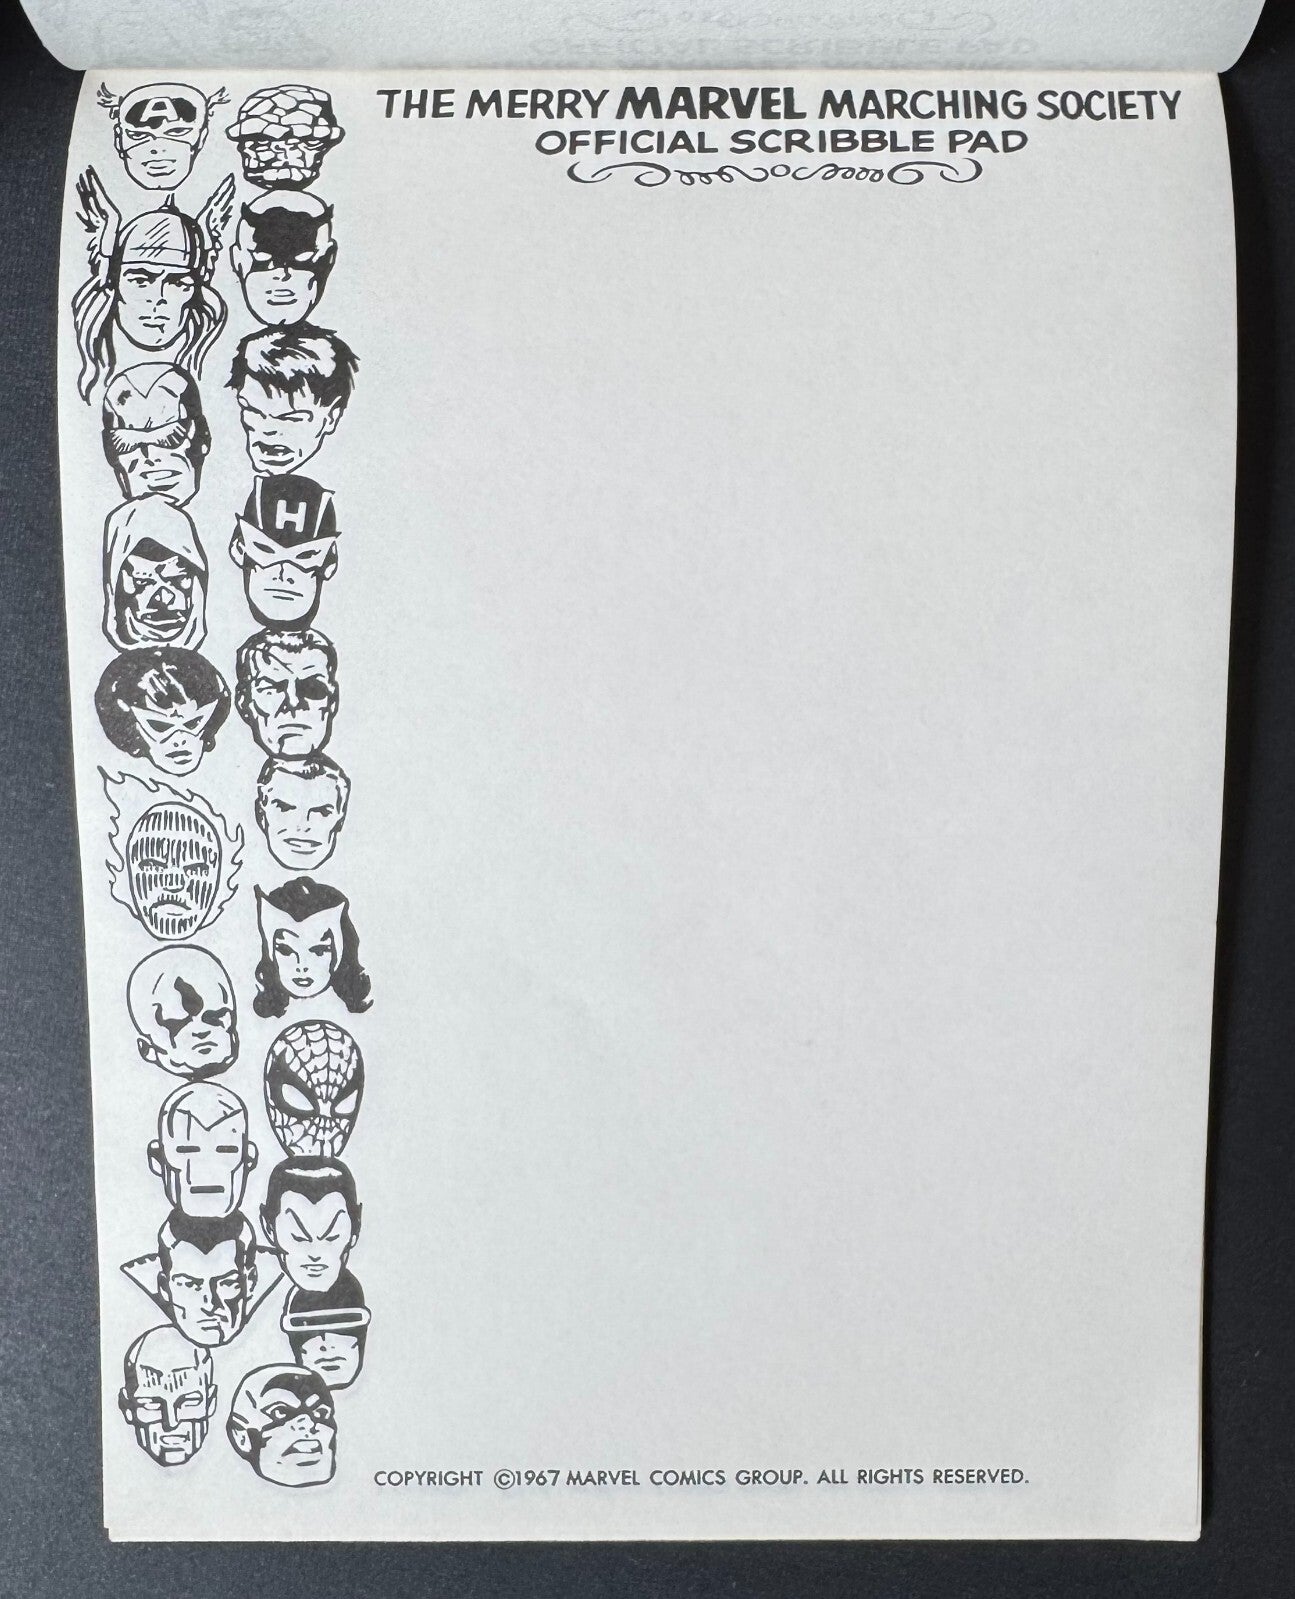 THE MERRY MARVEL MARCHING SOCIETY
OFFICIAL SCRIBBLE PAD
A
H
COPYRIGHT ©1967 MARVEL COMICS GROUP. ALL RIGHTS RESERVED.